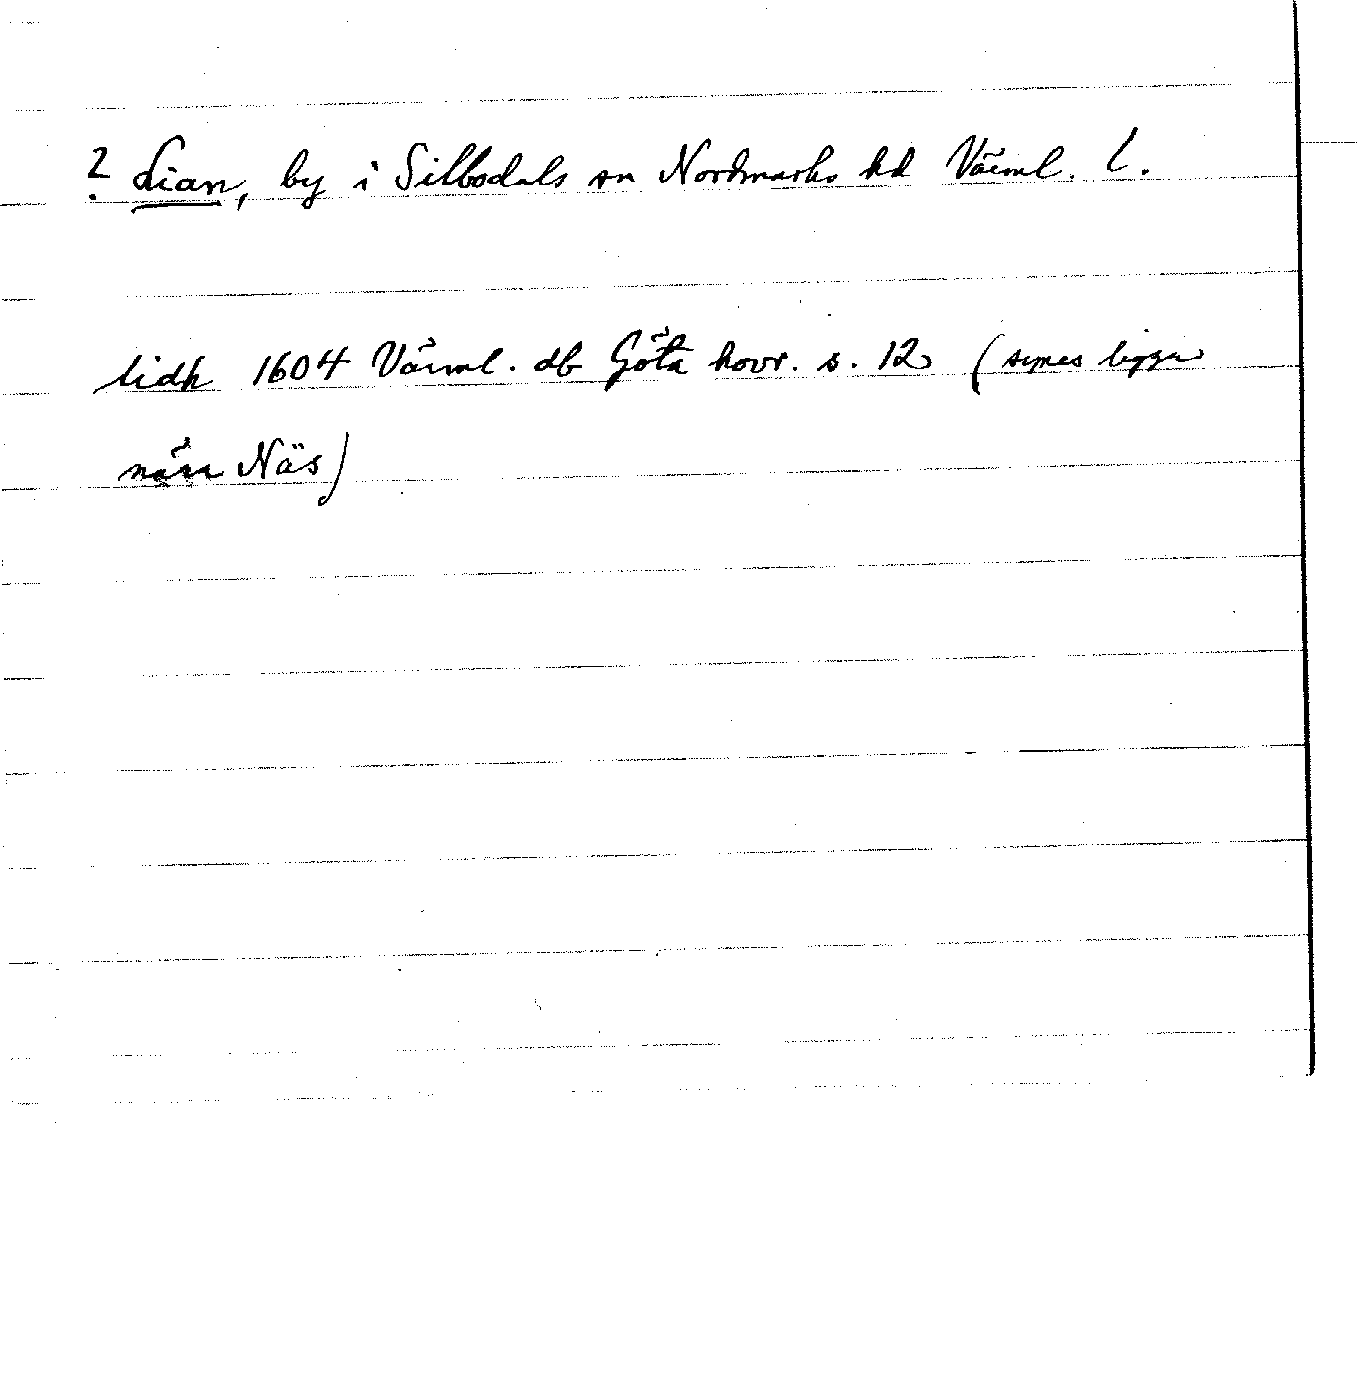 ? Lian, by i Silbodals sn Nordmarks hd Värml. l.
lidh 1604 Värml. db Göta hovr. s. 12 (synes ligga
nära Näs)